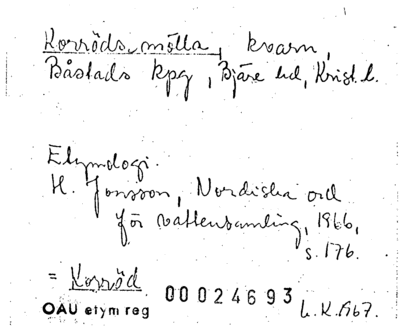 Korröds mölla, kvarn,
Båstads kpg, Bjäre hd, Krist. l.
Etymologi.
H. Jonsson, Nordiska ord
för vattensamling, 1966,
s. 176.
= Korröd
OAU etym reg 00024693 L.K. 1967.